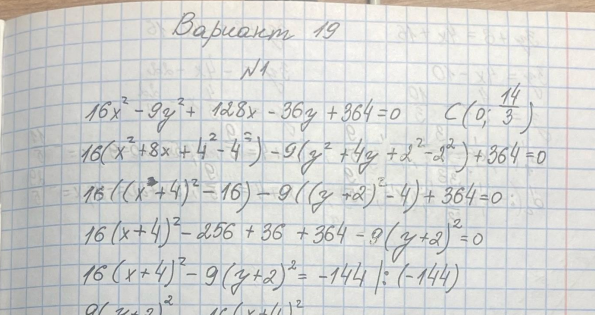 Вариант 19
№1
16x² - 9y² + 128x - 36y + 364 = 0 C(0; 14/3)
16(x² + 8x + 4² - 4²) - 9(y² + 4y + 2² - 2²) + 364 = 0
16((x + 4)² - 16) - 9((y + 2)² - 4) + 364 = 0
16(x + 4)² - 256 + 36 + 364 - 9(y + 2)² = 0
16(x + 4)² - 9(y + 2)² = -144 |: (-144)
9(y + 2)² 16(x + 4)²